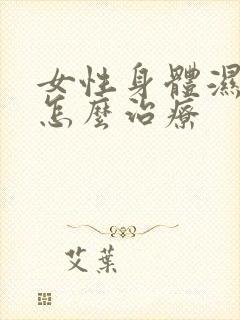 女性身體濕
怎麼治療
艾葉